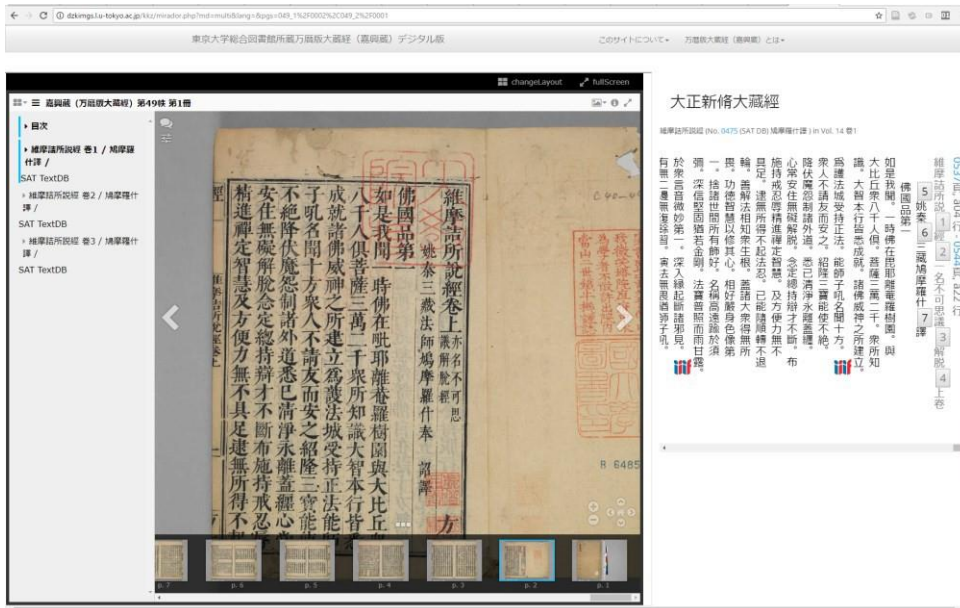 dzkimgs.l.u-tokyo.ac.jp/kkz/mirador.php?md=multi&lang=&pgs=049_1%2F0002%2C049_2%2F0001
東京大学総合図書館所蔵万暦版大蔵経（嘉興蔵）デジタル版
このサイトについて
万暦版大蔵経（嘉興蔵）とは
changeLayout
fullScreen
嘉興蔵（万暦版大蔵経）第49帙 第1冊
目次
維摩詰所説経 巻1 / 鳩摩羅什譯 /
SAT TextDB
維摩詰所説経 巻2 / 鳩摩羅什譯 /
SAT TextDB
維摩詰所説経 巻3 / 鳩摩羅什譯 /
SAT TextDB
維摩詰所說經卷上亦名不可思議解脫經
姚秦三藏法師鳩摩羅什奉 詔譯
佛國品第一
如是我聞一時佛在毗耶離菴羅樹園與大比丘
八千人俱菩薩三萬二千衆所知識大智本行皆
成就諸佛威神之所建立爲護法城受持正法能
子吼名聞十方衆人不請友而安之紹隆三寶能
不絕降伏魔怨制諸外道悉已清淨永離蓋纏心
安住無礙解脫念定總持辯才不斷布施持戒忍
精進禪定智慧及方便力無不具足逮無所得不
方
R 6485
p. 7
p. 6
p. 5
p. 4
p. 3
p. 2
p. 1
大正新脩大藏經
維摩詰所説經 (No. 0475 (SAT DB) 鳩摩羅什譯 ) in Vol. 14 卷1
維摩詰所説 1 經 2 一名不可思議 3 解脱 4 上卷
5 姚秦 6 三藏鳩摩羅什 7 譯
佛國品第一
如是我聞。一時佛在毘耶離菴羅樹園。與
大比丘衆八千人俱。菩薩三萬二千。衆所知
識。大智本行皆悉成就。諸佛威神之所建立。
爲護法城受持正法。能師子吼名聞十方。
衆人不請友而安之。紹隆三寶能使不絶。
降伏魔怨制諸外道。悉已清淨永離蓋纏。
心常安住無礙解脱。念定總持辯才不斷。布
施持戒忍辱精進禪定智慧。及方便力無不
具足。逮無所得不起法忍。已能隨順轉不退
輪。善解法相知衆生根。蓋諸大衆得無所
畏。功徳智慧以修其心。相好嚴身色像第
一。捨諸世間所有飾好。名稱高遠踰於須
彌。深信堅固猶若金剛。法寶普照而雨甘露。
於衆言音微妙第一。深入縁起斷諸邪見。
有無二邊無復餘習。演法無畏猶師子吼。